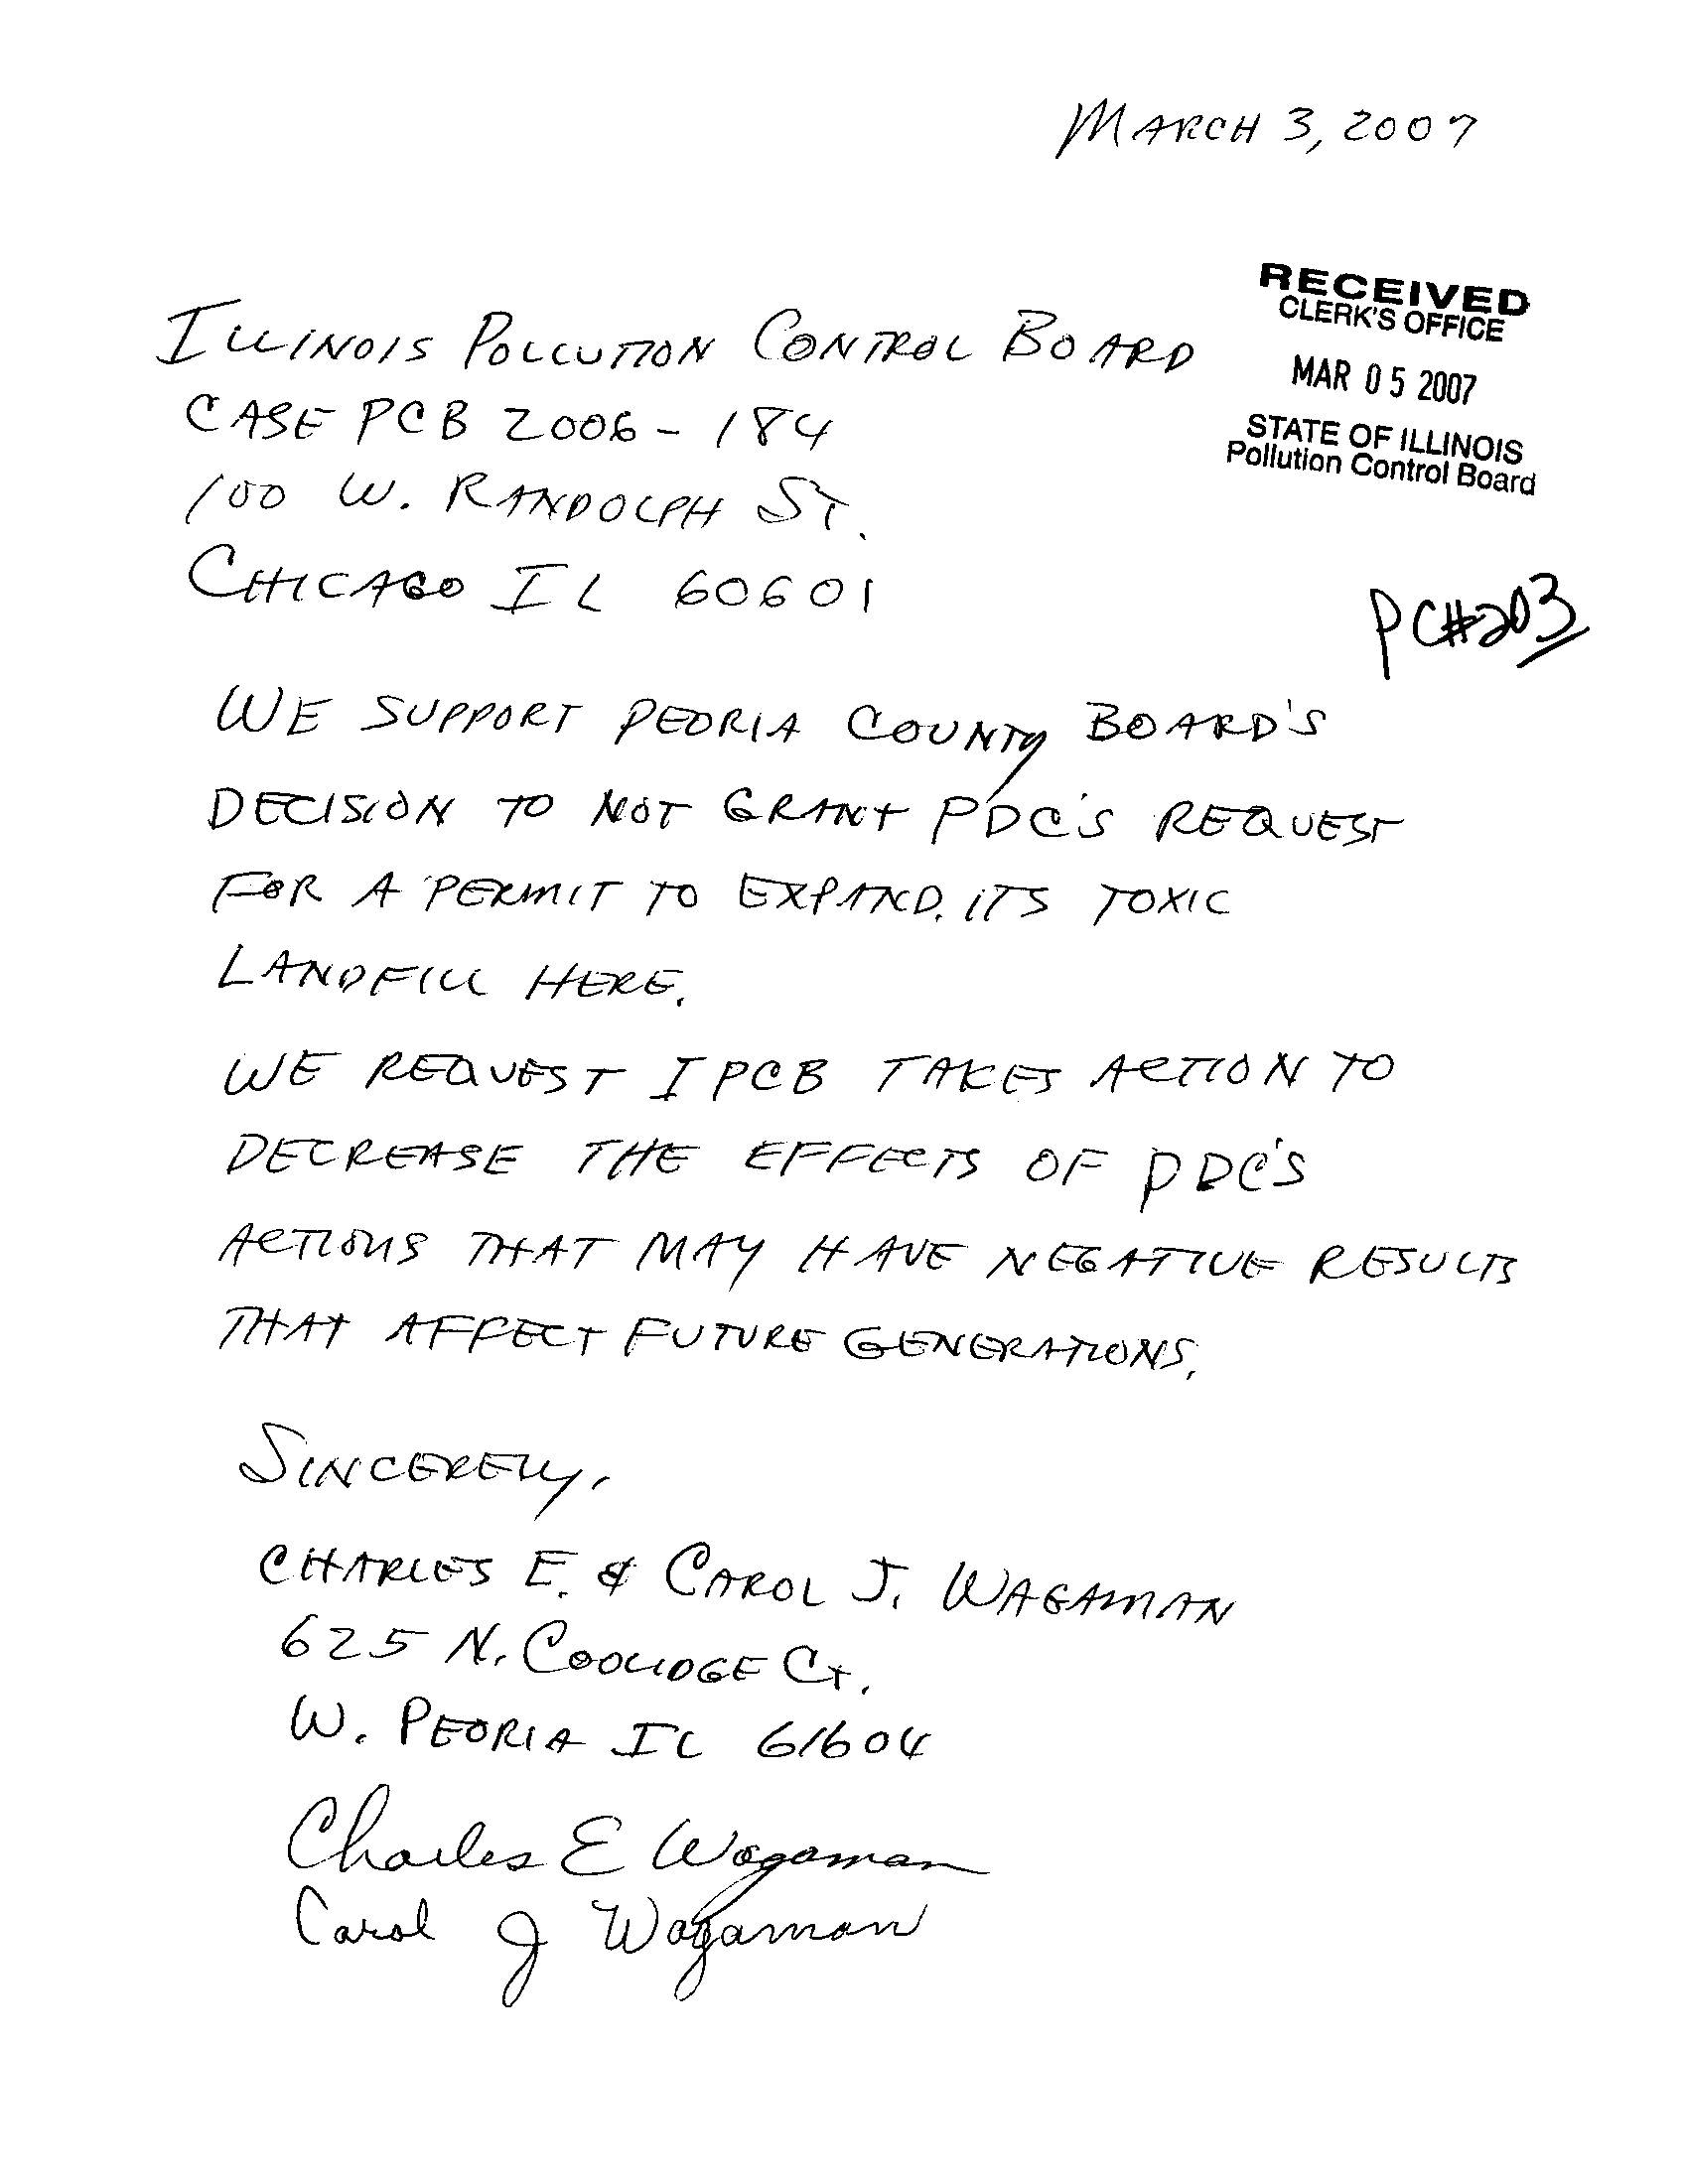 MARCH 3, 2007
RECEIVED
CLERK'S OFFICE
MAR 05 2007
STATE OF ILLINOIS
Pollution Control Board
ILLINOIS POLLUTION CONTROL BOARD
CASE PCB 2006-184
100 W. RANDOLPH ST.
CHICAGO IL 60601
PC#203
WE SUPPORT PEORIA COUNTY BOARD'S
DECISION TO NOT GRANT PDC'S REQUEST
FOR A PERMIT TO EXPAND ITS TOXIC
LANDFILL HERE.
WE REQUEST IPCB TAKES ACTION TO
DECREASE THE EFFECTS OF PDC'S
ACTIONS THAT MAY HAVE NEGATIVE RESULTS
THAT AFFECT FUTURE GENERATIONS.
SINCERELY,
CHARLES E. & CAROL J. WAGAMAN
625 N. COOLIDGE CT.
W. PEORIA IL 61604
Charles E Wagaman
Carol J Wagaman